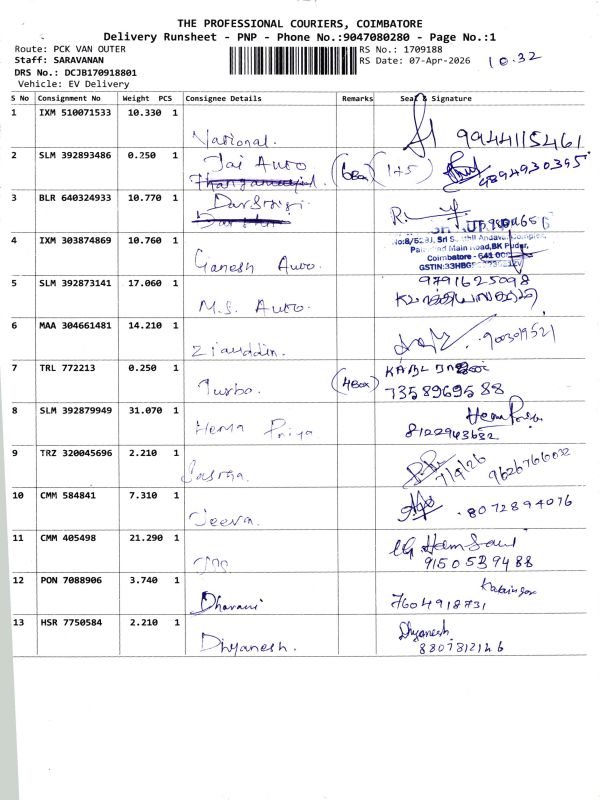 THE PROFESSIONAL COURIERS, COIMBATORE
Delivery Runsheet - PNP - Phone No.:9047080280 - Page No.:1
Route: PCK VAN OUTER RS No.: 1709188
Staff: SARAVANAN RS Date: 07-Apr-2026 10.32
DRS No.: DCJB170918801
Vehicle: EV Delivery
S No Consignment No Weight PCS Consignee Details Remarks Seal & Signature
1 IXM 510071533 10.330 1 National. 9944115461
2 SLM 392893486 0.250 1 Jai Auto (6Box) (1+5) 9894930395
3 BLR 640324933 10.770 1
4 IXM 303874869 10.760 1 Ganesh Auto.
Main Road, BK Pudur,
Coimbatore - 641 00
5 SLM 392873141 17.060 1 M.S. Auto. 9791625098
6 MAA 304661481 14.210 1 Ziauddin.
7 TRL 772213 0.250 1 Turbo. (4Box) 7358969588
8 SLM 392879949 31.070 1 Hema Priya Hema Priya
8122943632
9 TRZ 320045696 2.210 1 7/4/26 9626766032
10 CMM 584841 7.310 1 Jeeva. 8072894076
11 CMM 405498 21.290 1
9150539488
12 PON 7088906 3.740 1 Dharani 7604918731
13 HSR 7750584 2.210 1 Dhyanesh. Dhyanesh
8807812146